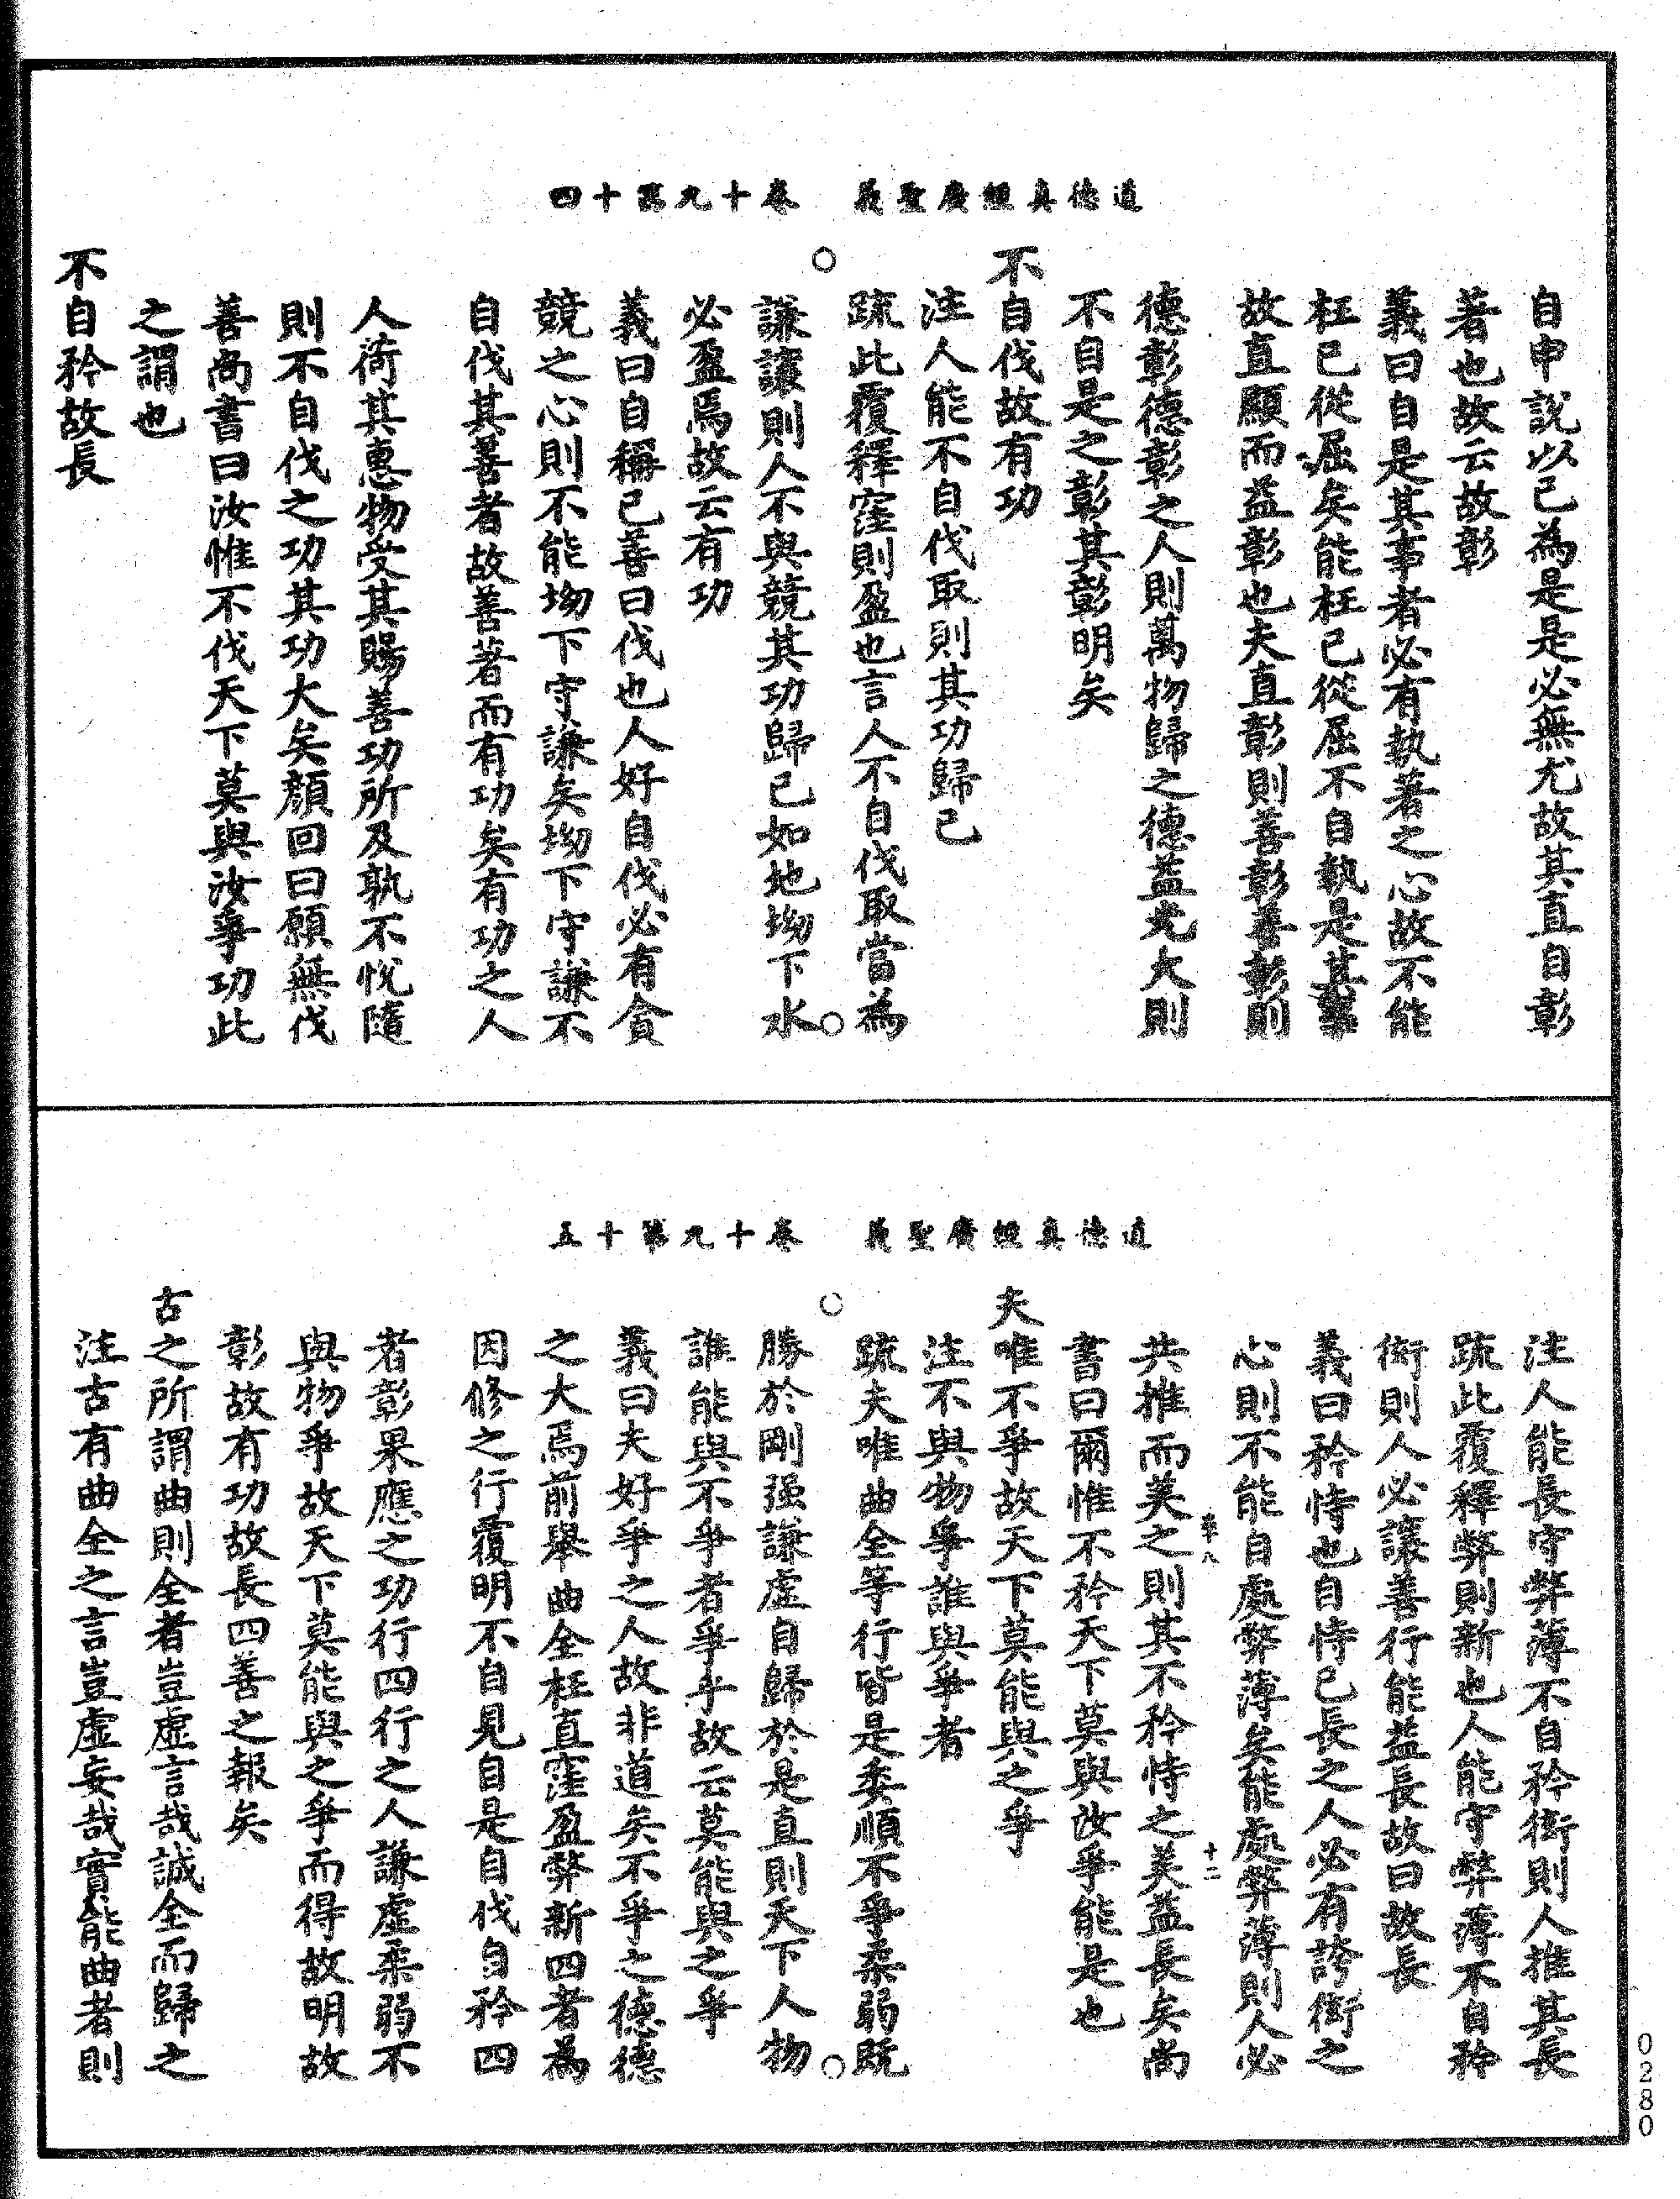 道德真經廣聖義　卷十九第十四
自申說以己為是是必無尤故其直自彰
著也故云故彰
義曰自是其事者必有執著之心故不能
枉已從屈矣能枉已從屈不自執是其事
故直顯而益彰也夫直彰則善彰善彰則
德彰德彰之人則萬物歸之德益光大則
不自是之彰其彰明矣
不自伐故有功
注人能不自伐取則其功歸己
疏此覆釋窪則盈也言人不自伐取當為
謙讓則人不與競其功歸已如地坳下水
必盈焉故云有功
義曰自稱已善曰伐也人好自伐必有貪
競之心則不能坳下守謙矣坳下守謙不
自伐其善者故善著而有功矣有功之人
人荷其惠物受其賜善功所及孰不悅隨
則不自伐之功其功大矣顏回曰願無伐
善尚書曰汝惟不伐天下莫與汝爭功此
之謂也
不自矜故長
道德真經廣聖義　卷十九第十五
注人能長守弊薄不自矜衒則人推其長
疏此覆釋弊則新也人能守弊薄不自矜
衒則人必讓善行能益長故曰故長
義曰矜恃也自恃已長之人必有誇衒之
心則不能自處弊薄矣能處弊薄則人必
共推而美之則其不矜恃之美益長矣尚
十二
書曰爾惟不矜天下莫與汝爭能是也
夫唯不爭故天下莫能與之爭
注不與物爭誰與爭者
疏夫唯曲全等行皆是委順不爭柔弱既
勝於剛强謙虛自歸於是直則天下人物
誰能與不爭者爭乎故云莫能與之爭
義曰夫好爭之人故非道矣不爭之德德
之大焉前舉曲全枉直窪盈弊新四者為
因修之行覆明不自見自是自伐自矜四
者彰果應之功行四行之人謙虛柔弱不
與物爭故天下莫能與之爭而得故明故
彰故有功故長四善之報矣
古之所謂曲則全者豈虛言哉誠全而歸之
注古有曲全之言豈虛妄哉實能曲者則
0280